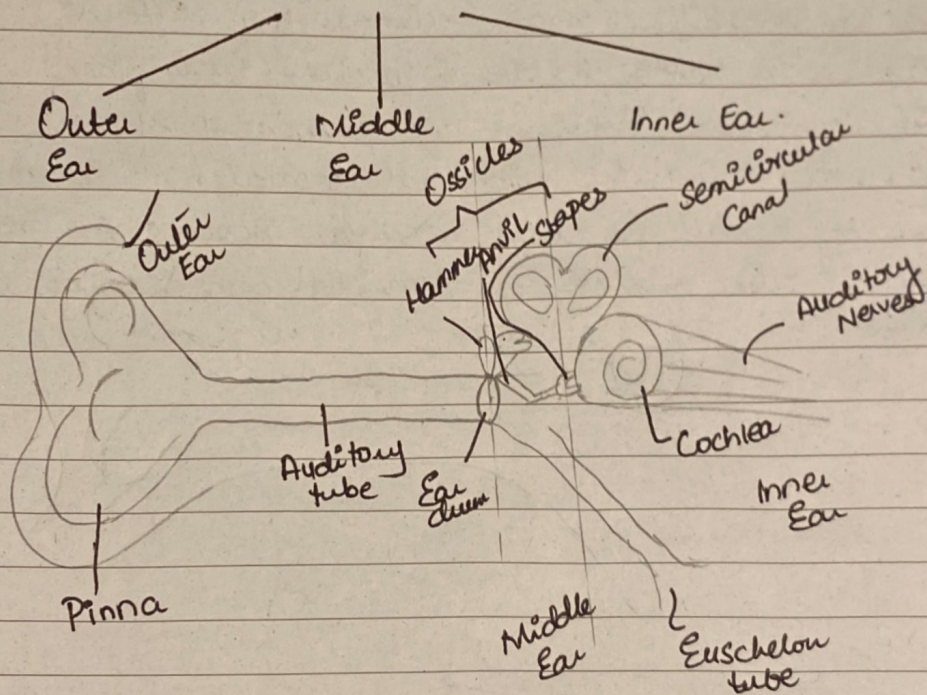 Outer
Ear
Middle
Ear
Inner Ear.
Ossicles
Hammer
Anvil
Stapes
Semicircular
Canal
Outer
Ear
Auditory
Nerves
Auditory
tube
Ear
drum
Cochlea
Inner
Ear
Pinna
Middle
Ear
Euschelon
tube